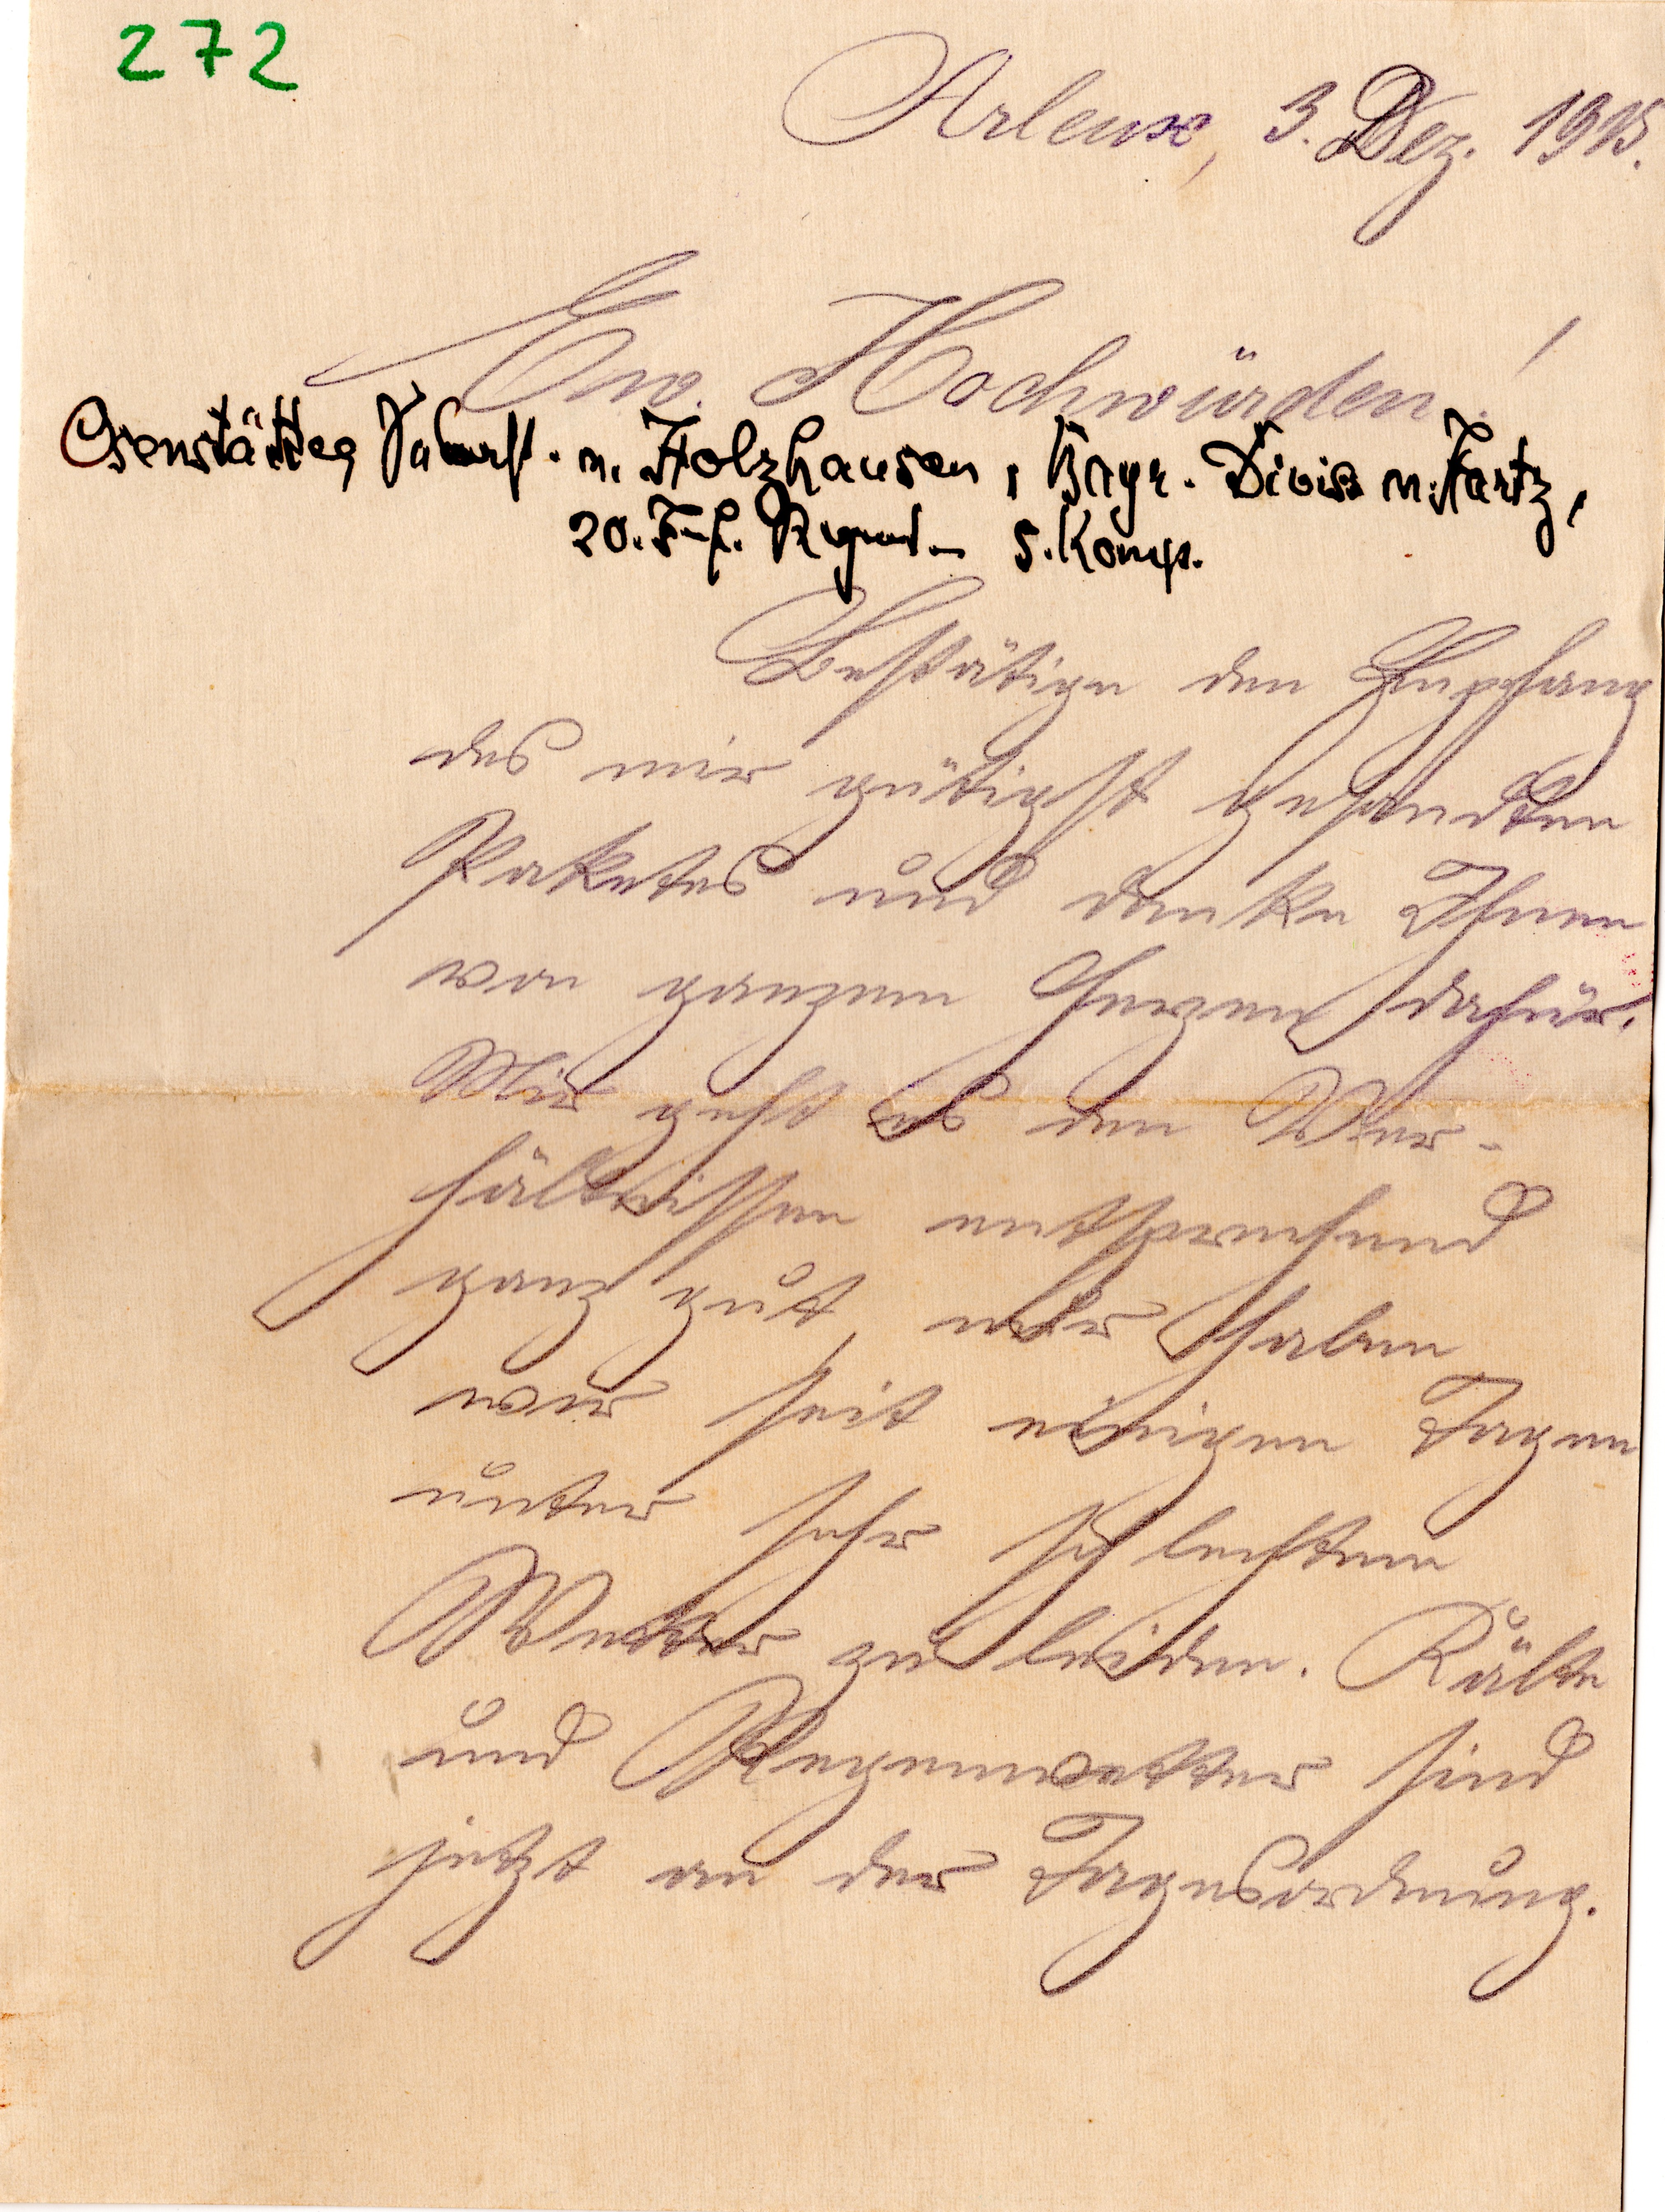 272
Arleux, 3. Dez. 1915.
Euer Hochwürden!
Osenstätter v. Holzhausen, Bayr. Divis v. Hartz,
20. Inf. Regmt. 5. Komp.
Bestätige den Empfang
des mir gütigst gesandten
Paketes und danke Ihnen
von ganzem Herzen dafür.
Mir geht es den Ver-
hältnissen entsprechend
ganz gut, nur haben
wir seit einigen Tagen
unter sehr schlechtem
Wetter zu leiden. Kälte
und Regenwetter sind
jetzt an der Tagesordnung.